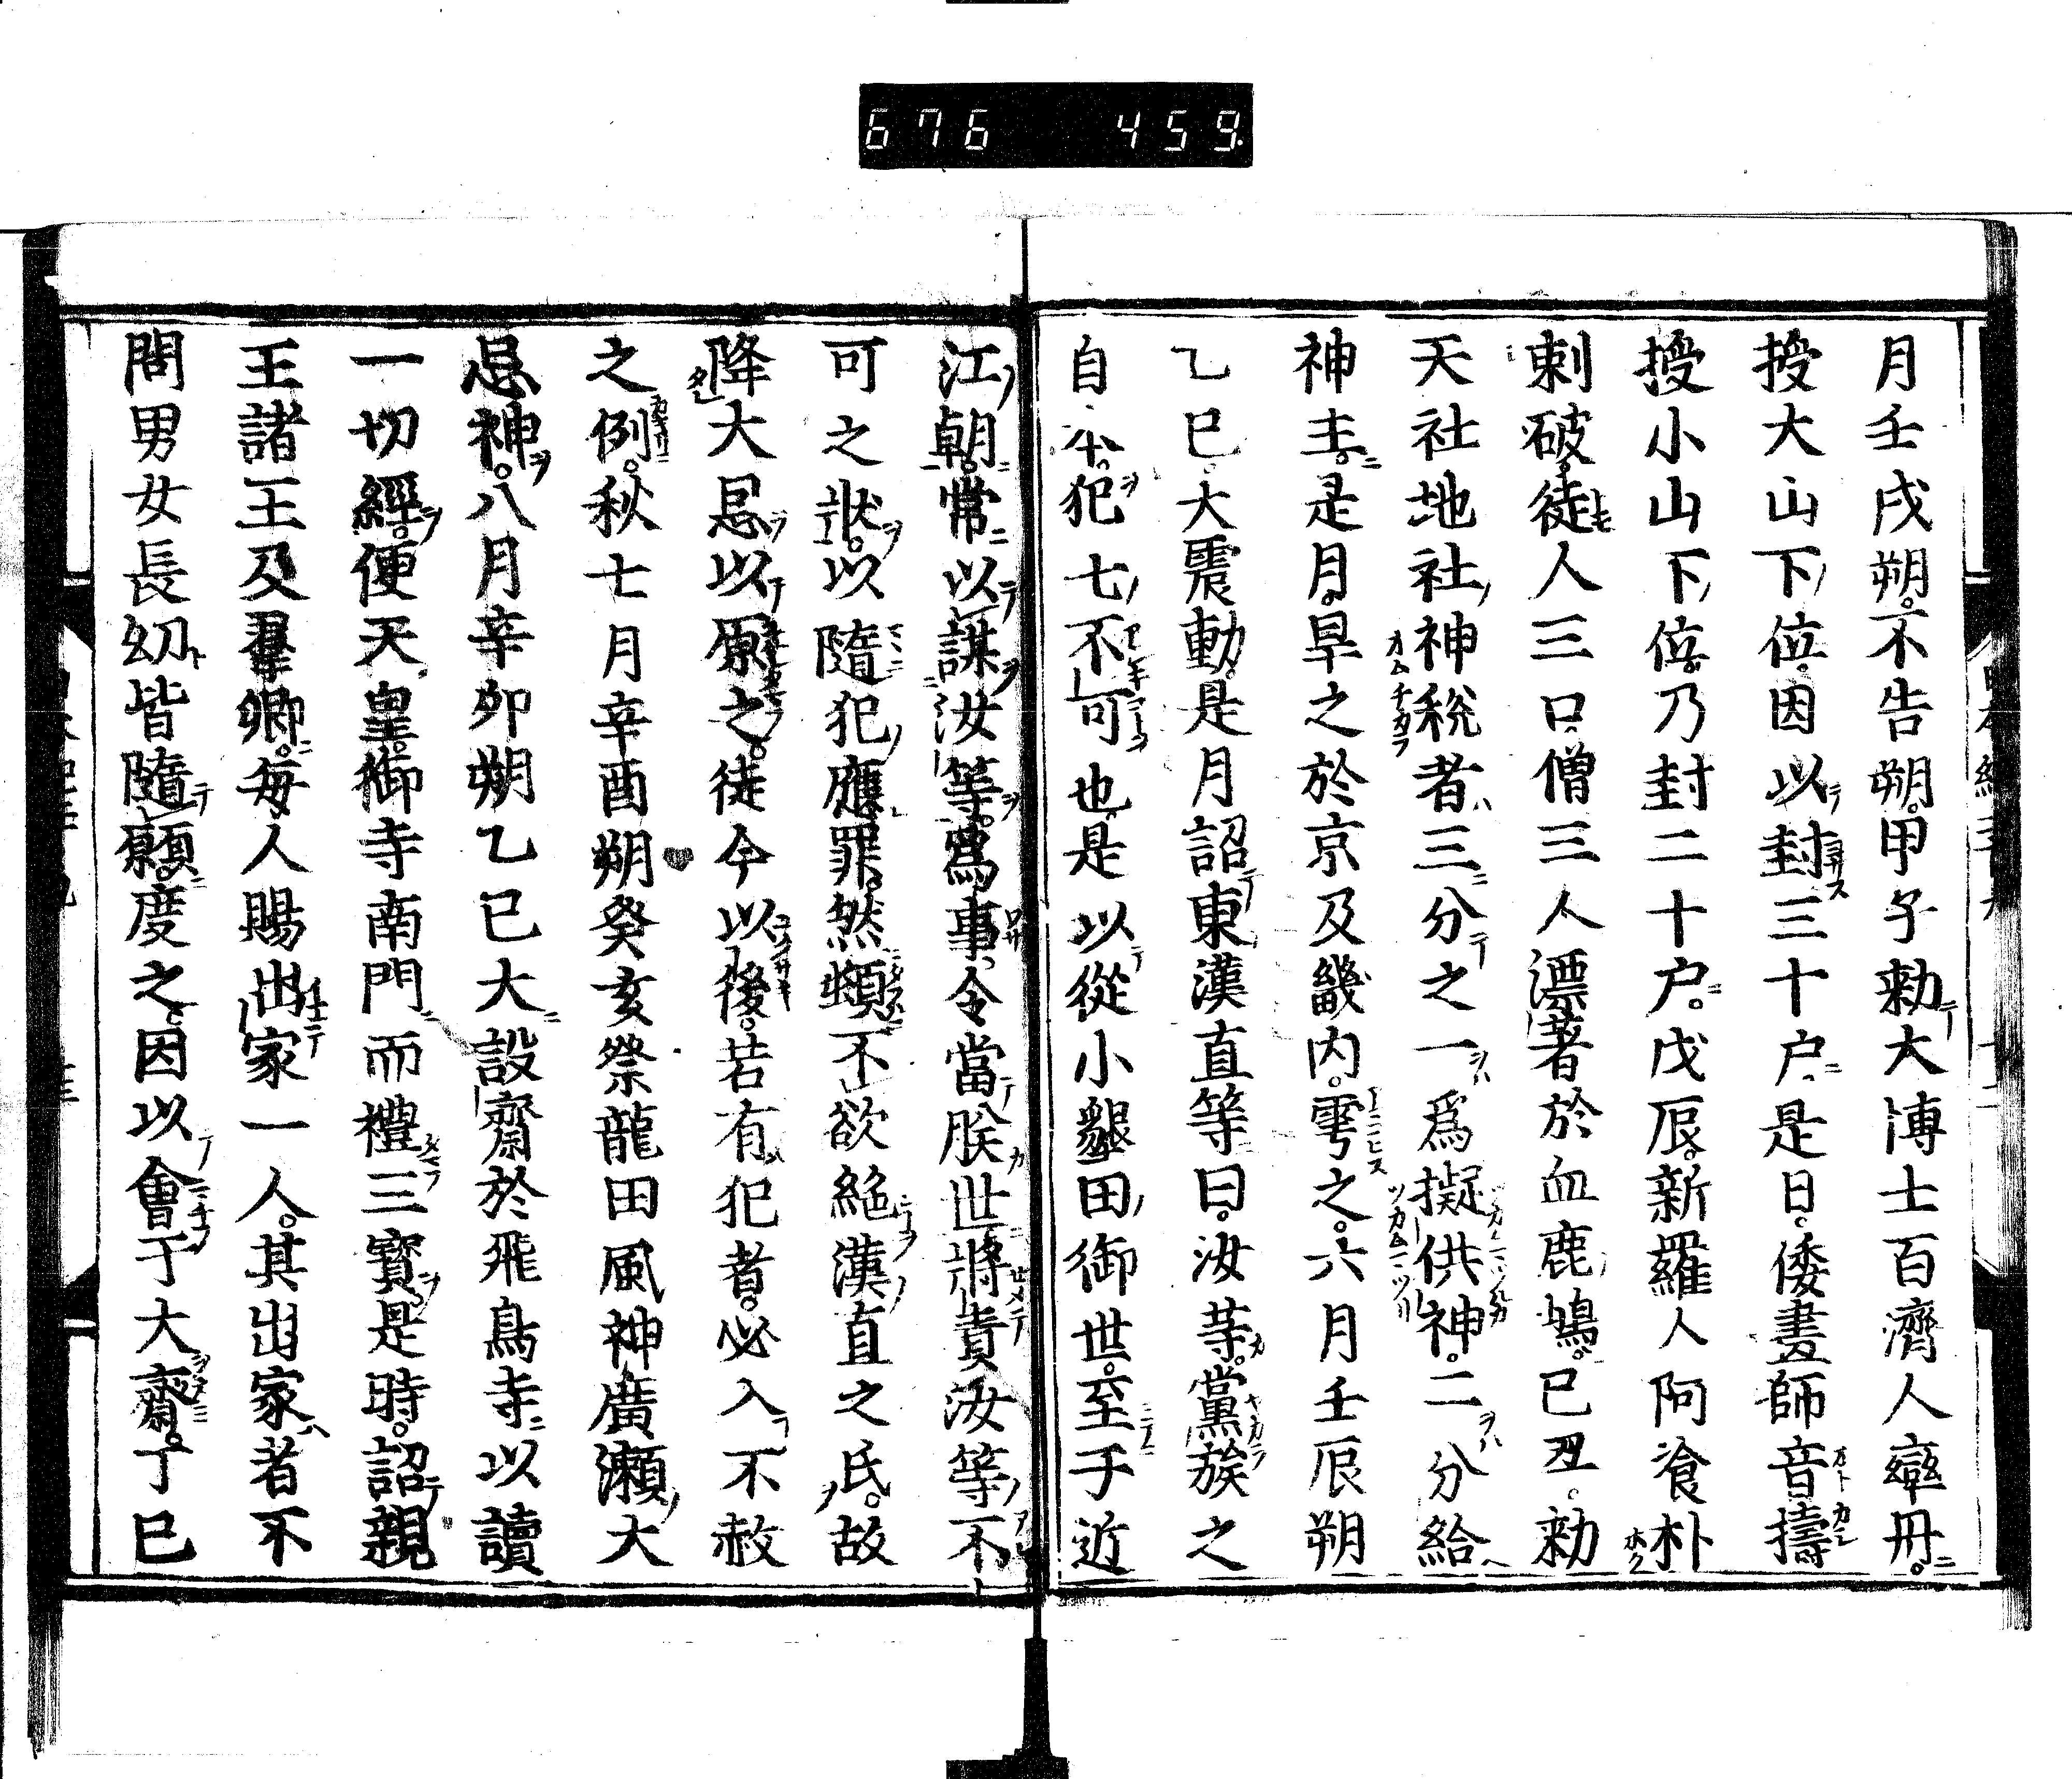 676 459
月壬戌朔。不告朔。甲子勅大博士百濟人率冊。
授大山下位。因以封三十户。是日。倭畫師音擣
授小山下位。乃封二十户。戊辰。新羅人阿飡朴
刺破。徒人三口。僧三人漂著於血鹿嶋。已丑。勅
天社地社神税者三分之一爲擬供神。二分給
神主。是月。旱之於京及畿内。雩之。六月壬辰朔
乙巳。大震動。是月詔東漢直等曰。汝等。黨族之
自本。犯七不可也。是以從小墾田御世。至于近
江朝。常以謀汝等。爲事。令當朕世將責汝等不
可之狀。以隨犯應罪。然頓不欲絶漢直之氏。故
降大恩以原之。從今以後。若有犯者。必入不赦
之例。秋七月辛酉朔癸亥祭龍田風神廣瀬大
忌神。八月辛卯朔乙巳大設齋於飛鳥寺以讀
一切經。便天皇。御寺南門而禮三寳。是時。詔親
王諸王及羣卿。毎人賜出家一人。其出家者不
問男女長幼皆隨願。度之。因以會于大齋。丁巳